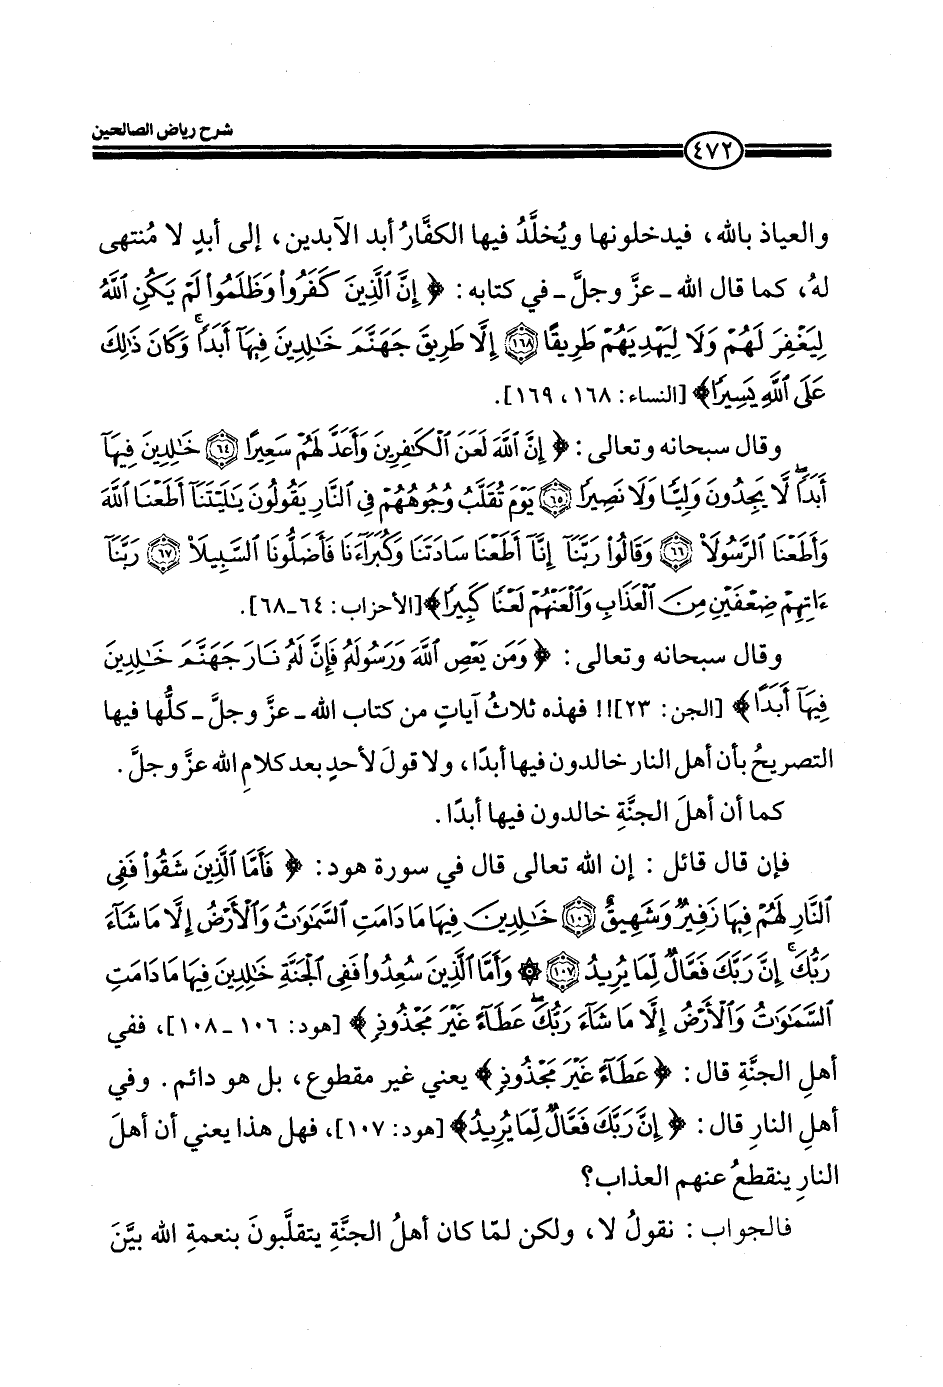 شرح رياض الصالحين
٤٧٢
والعياذ بالله، فيدخلونها ويُخلَّدُ فيها الكفَّارُ أبد الآبدين، إلى أبدٍ لا مُنتهى
لهُ، كما قال الله ـ عزَّ وجلَّ ـ في كتابه: ﴿ إِنَّ ٱلَّذِينَ كَفَرُوا۟ وَظَلَمُوا۟ لَمْ يَكُنِ ٱللَّهُ
لِيَغْفِرَ لَهُمْ وَلَا لِيَهْدِيَهُمْ طَرِيقًا ١٦٨ إِلَّا طَرِيقَ جَهَنَّمَ خَٰلِدِينَ فِيهَآ أَبَدًا ۚ وَكَانَ ذَٰلِكَ
عَلَى ٱللَّهِ يَسِيرًا﴾ [النساء: ١٦٨، ١٦٩].
وقال سبحانه وتعالى: ﴿ إِنَّ ٱللَّهَ لَعَنَ ٱلْكَٰفِرِينَ وَأَعَدَّ لَهُمْ سَعِيرًا ٦٤ خَٰلِدِينَ فِيهَآ
أَبَدًا ۖ لَّا يَجِدُونَ وَلِيًّا وَلَا نَصِيرًا ٦٥ يَوْمَ تُقَلَّبُ وُجُوهُهُمْ فِى ٱلنَّارِ يَقُولُونَ يَٰلَيْتَنَآ أَطَعْنَا ٱللَّهَ
وَأَطَعْنَا ٱلرَّسُولَا۠ ٦٦ وَقَالُوا۟ رَبَّنَآ إِنَّآ أَطَعْنَا سَادَتَنَا وَكُبَرَآءَنَا فَأَضَلُّونَا ٱلسَّبِيلَا۠ ٦٧ رَبَّنَآ
ءَاتِهِمْ ضِعْفَيْنِ مِنَ ٱلْعَذَابِ وَٱلْعَنْهُمْ لَعْنًا كَبِيرًا﴾ [الأحزاب: ٦٤ـ٦٨].
وقال سبحانه وتعالى: ﴿ وَمَن يَعْصِ ٱللَّهَ وَرَسُولَهُۥ فَإِنَّ لَهُۥ نَارَ جَهَنَّمَ خَٰلِدِينَ
فِيهَآ أَبَدًا ﴾ [الجن: ٢٣]!! فهذه ثلاثُ آياتٍ من كتاب الله ـ عزَّ وجلَّ ـ كلُّها فيها
التصريحُ بأن أهل النار خالدون فيها أبدًا، ولا قولَ لأحدٍ بعد كلامِ الله عزَّ وجلَّ.
كما أن أهلَ الجنَّةِ خالدون فيها أبدًا.
فإن قال قائل: إن الله تعالى قال في سورة هود: ﴿ فَأَمَّا ٱلَّذِينَ شَقُوا۟ فَفِى
ٱلنَّارِ لَهُمْ فِيهَا زَفِيرٌ وَشَهِيقٌ ١٠٦ خَٰلِدِينَ فِيهَا مَا دَامَتِ ٱلسَّمَٰوَٰتُ وَٱلْأَرْضُ إِلَّا مَا شَآءَ
رَبُّكَ ۚ إِنَّ رَبَّكَ فَعَّالٌ لِّمَا يُرِيدُ ١٠٧ ۞ وَأَمَّا ٱلَّذِينَ سُعِدُوا۟ فَفِى ٱلْجَنَّةِ خَٰلِدِينَ فِيهَا مَا دَامَتِ
ٱلسَّمَٰوَٰتُ وَٱلْأَرْضُ إِلَّا مَا شَآءَ رَبُّكَ ۖ عَطَآءً غَيْرَ مَجْذُوذٍ ﴾ [هود: ١٠٦ ـ ١٠٨]، ففي
أهلِ الجنَّةِ قال: ﴿ عَطَآءً غَيْرَ مَجْذُوذٍ ﴾ يعني غير مقطوع، بل هو دائم. وفي
أهلِ النارِ قال: ﴿ إِنَّ رَبَّكَ فَعَّالٌ لِّمَا يُرِيدُ﴾ [هود: ١٠٧]، فهل هذا يعني أن أهلَ
النارِ ينقطعُ عنهم العذاب؟
فالجواب: نقولُ لا، ولكن لمّا كان أهلُ الجنَّةِ يتقلَّبونَ بنعمةِ الله بيَّنَ